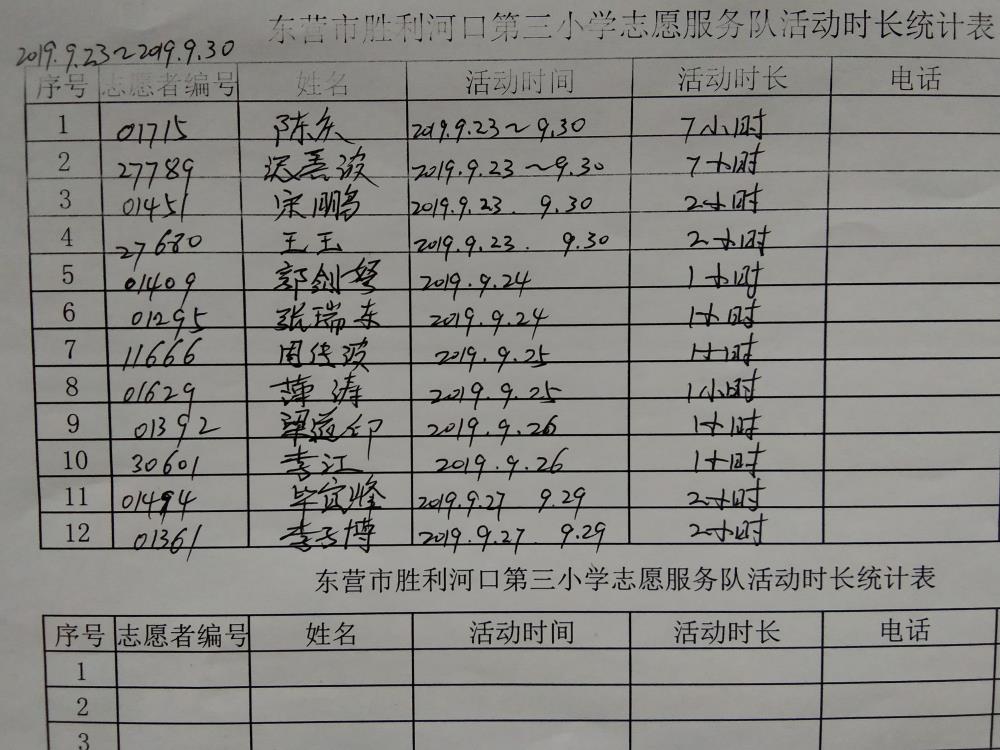 东营市胜利河口第三小学志愿服务队活动时长统计表
2019.9.23～2019.9.30
序号 志愿者编号 姓名 活动时间 活动时长 电话
1 01715 陈庆 2019.9.23～9.30 7小时
2 27789 2019.9.23～9.30 7小时
3 01451 宋鹏 2019.9.23. 9.30 2小时
4 27680 王玉 2019.9.23. 9.30 2小时
5 01409 2019.9.24 1小时
6 01295 张瑞东 2019.9.24 1小时
7 11666 周传波 2019.9.25 1小时
8 01629 薄涛 2019.9.25 1小时
9 01392 2019.9.26 1小时
10 30601 李江 2019.9.26 1小时
11 01494 毕宜峰 2019.9.27 9.29 2小时
12 01361 李玉博 2019.9.27. 9.29 2小时
东营市胜利河口第三小学志愿服务队活动时长统计表
序号 志愿者编号 姓名 活动时间 活动时长 电话
1
2
3